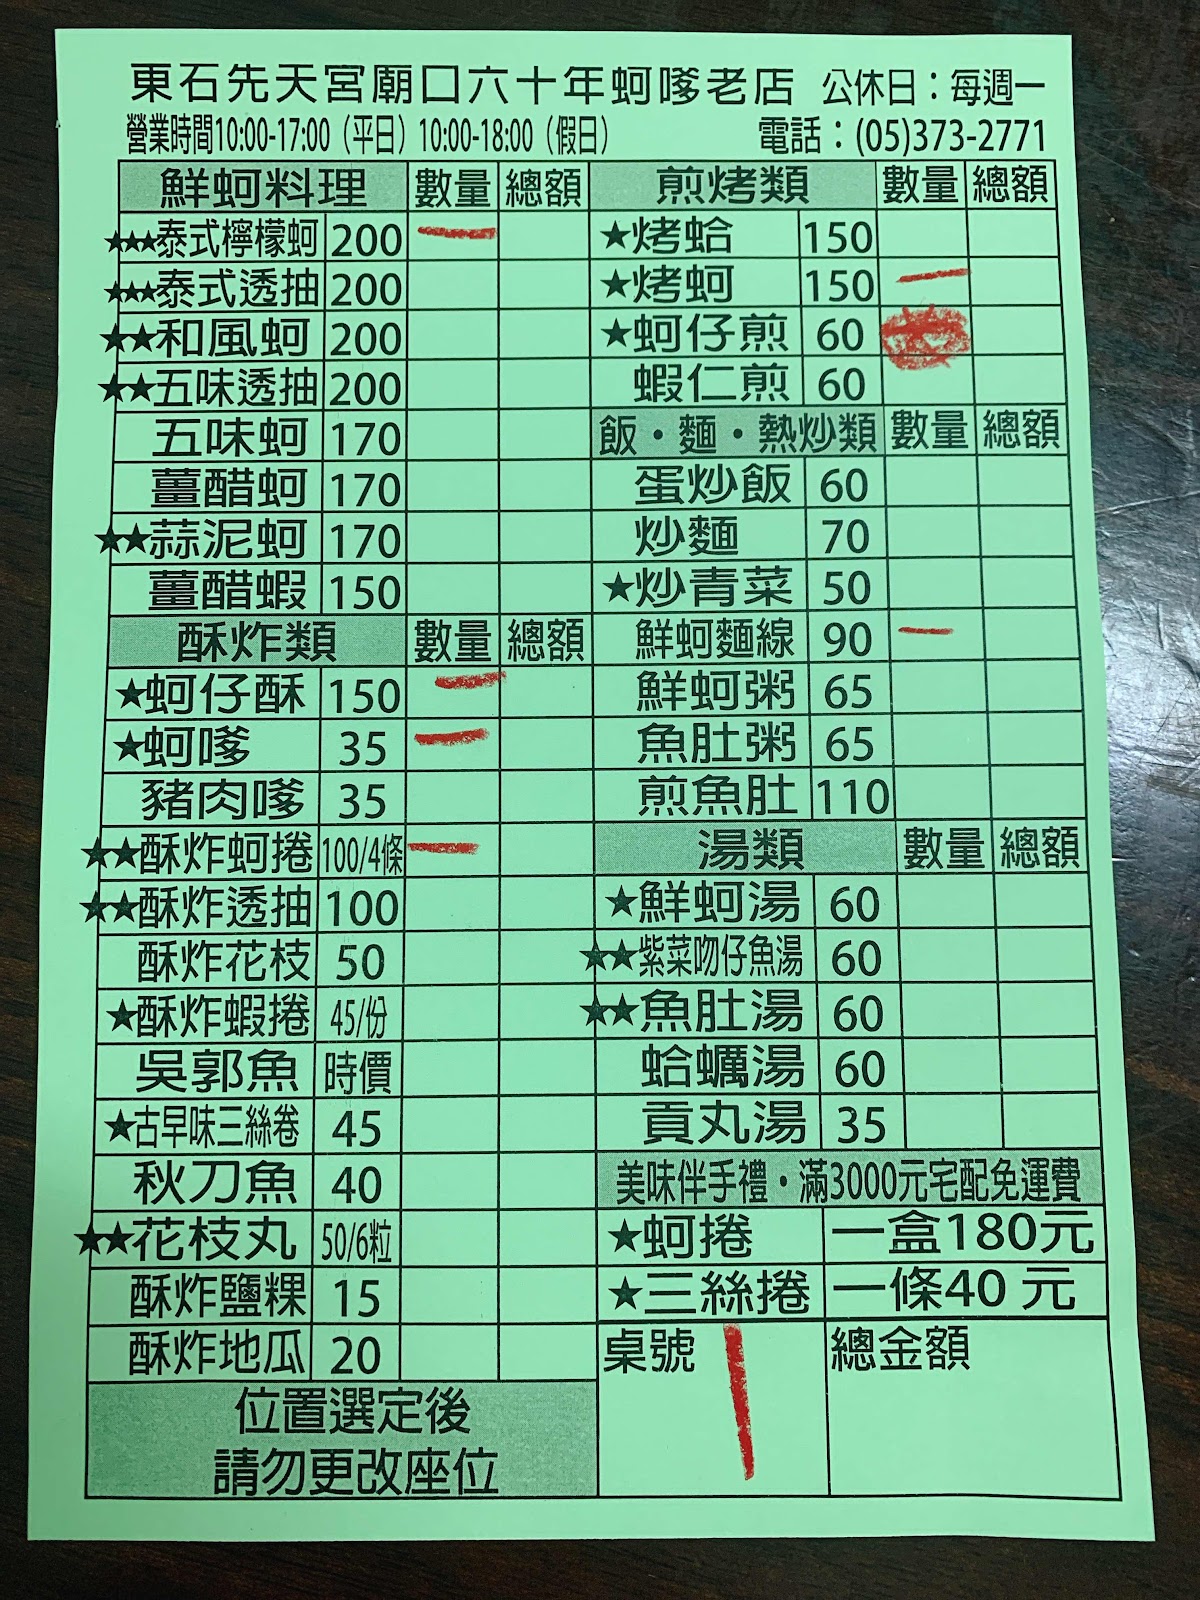 東石先天宮廟口六十年蚵嗲老店 公休日：每週一
營業時間10:00-17:00（平日）10:00-18:00（假日） 電話：(05)373-2771
鮮蚵料理 數量 總額
★★★泰式檸檬蚵 200 一
★★★泰式透抽 200
★★和風蚵 200
★★五味透抽 200
五味蚵 170
薑醋蚵 170
★★蒜泥蚵 170
薑醋蝦 150
酥炸類 數量 總額
★蚵仔酥 150 一
★蚵嗲 35 一
豬肉嗲 35
★★酥炸蚵捲 100/4條 一
★★酥炸透抽 100
酥炸花枝 50
★酥炸蝦捲 45/份
吳郭魚 時價
★古早味三絲卷 45
秋刀魚 40
★★花枝丸 50/6粒
酥炸鹽粿 15
酥炸地瓜 20
位置選定後
請勿更改座位
煎烤類 數量 總額
★烤蛤 150
★烤蚵 150 一
★蚵仔煎 60
蝦仁煎 60
飯・麵・熱炒類 數量 總額
蛋炒飯 60
炒麵 70
★炒青菜 50
鮮蚵麵線 90 一
鮮蚵粥 65
魚肚粥 65
煎魚肚 110
湯類 數量 總額
★鮮蚵湯 60
★★紫菜吻仔魚湯 60
★★魚肚湯 60
蛤蠣湯 60
貢丸湯 35
美味伴手禮・滿3000元宅配免運費
★蚵捲 一盒180元
★三絲捲 一條40 元
桌號 1 總金額